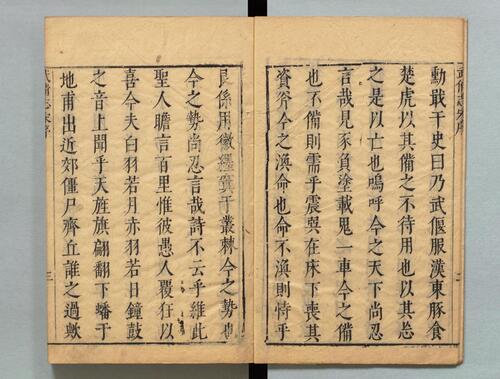 勳戢干史曰乃武偃服漢東豚食
楚虎以其備之不待用也以其忘
之是以亡也嗚呼今之天下尚忍
言哉見豕負塗載鬼一車今之備
也不備則需乎震巽在床下喪其
資斧今之渙命也命不渙則恃乎
艮係用徽纆寘于叢棘今之勢也
今之勢尚忍言哉詩不云乎維此
聖人瞻言百里惟彼愚人覆狂以
喜今夫白羽若月赤羽若日鐘鼓
之音上聞乎天旌旗翩翻下蟠于
地甫出近郊僵尸齊丘誰之過歟
三